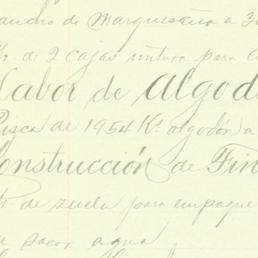 ancho de Marquesina a 3
de 2 cajas untura para
Labor de Algod
Pisca de 1954 Ks. algodón a
onstrucción de Fin
de zuela para empaque
a sacar agua